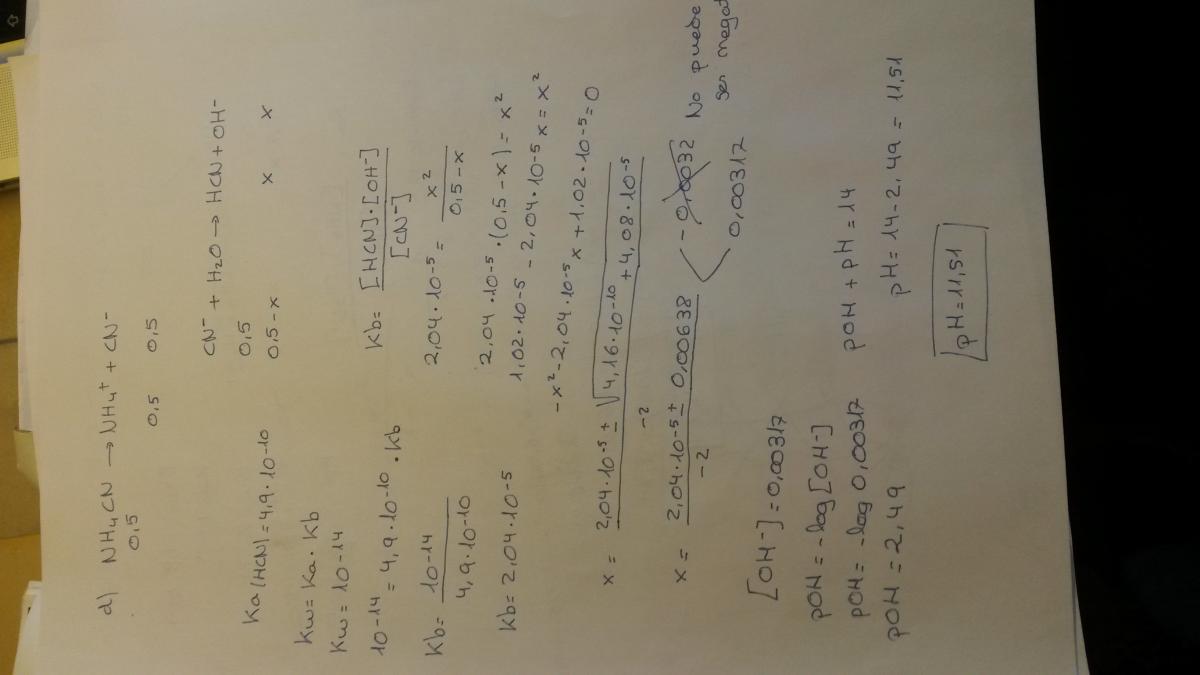 d) NH₄CN → NH₄⁺ + CN⁻
0,5 0,5 0,5
CN⁻ + H₂O → HCN + OH⁻
0,5
0,5-x x x
Ka(HCN) = 4,9·10⁻¹⁰
Kw = Ka · Kb
Kw = 10⁻¹⁴
10⁻¹⁴ = 4,9·10⁻¹⁰ · Kb
Kb = 10⁻¹⁴ / 4,9·10⁻¹⁰
Kb = 2,04·10⁻⁵
Kb = [HCN]·[OH⁻] / [CN⁻]
2,04·10⁻⁵ = x² / 0,5-x
2,04·10⁻⁵·(0,5-x) = x²
1,02·10⁻⁵ - 2,04·10⁻⁵x = x²
-x² - 2,04·10⁻⁵x + 1,02·10⁻⁵ = 0
x = 2,04·10⁻⁵ ± √4,16·10⁻¹⁰ + 4,08·10⁻⁵ / -2
x = 2,04·10⁻⁵ ± 0,00638 / -2
-0,0032 No puede
ser negat
0,00317
[OH⁻] = 0,00317
pOH = -log[OH⁻]
pOH = -log 0,00317
pOH = 2,49
pOH + pH = 14
pH = 14-2,49 = 11,51
pH = 11,51